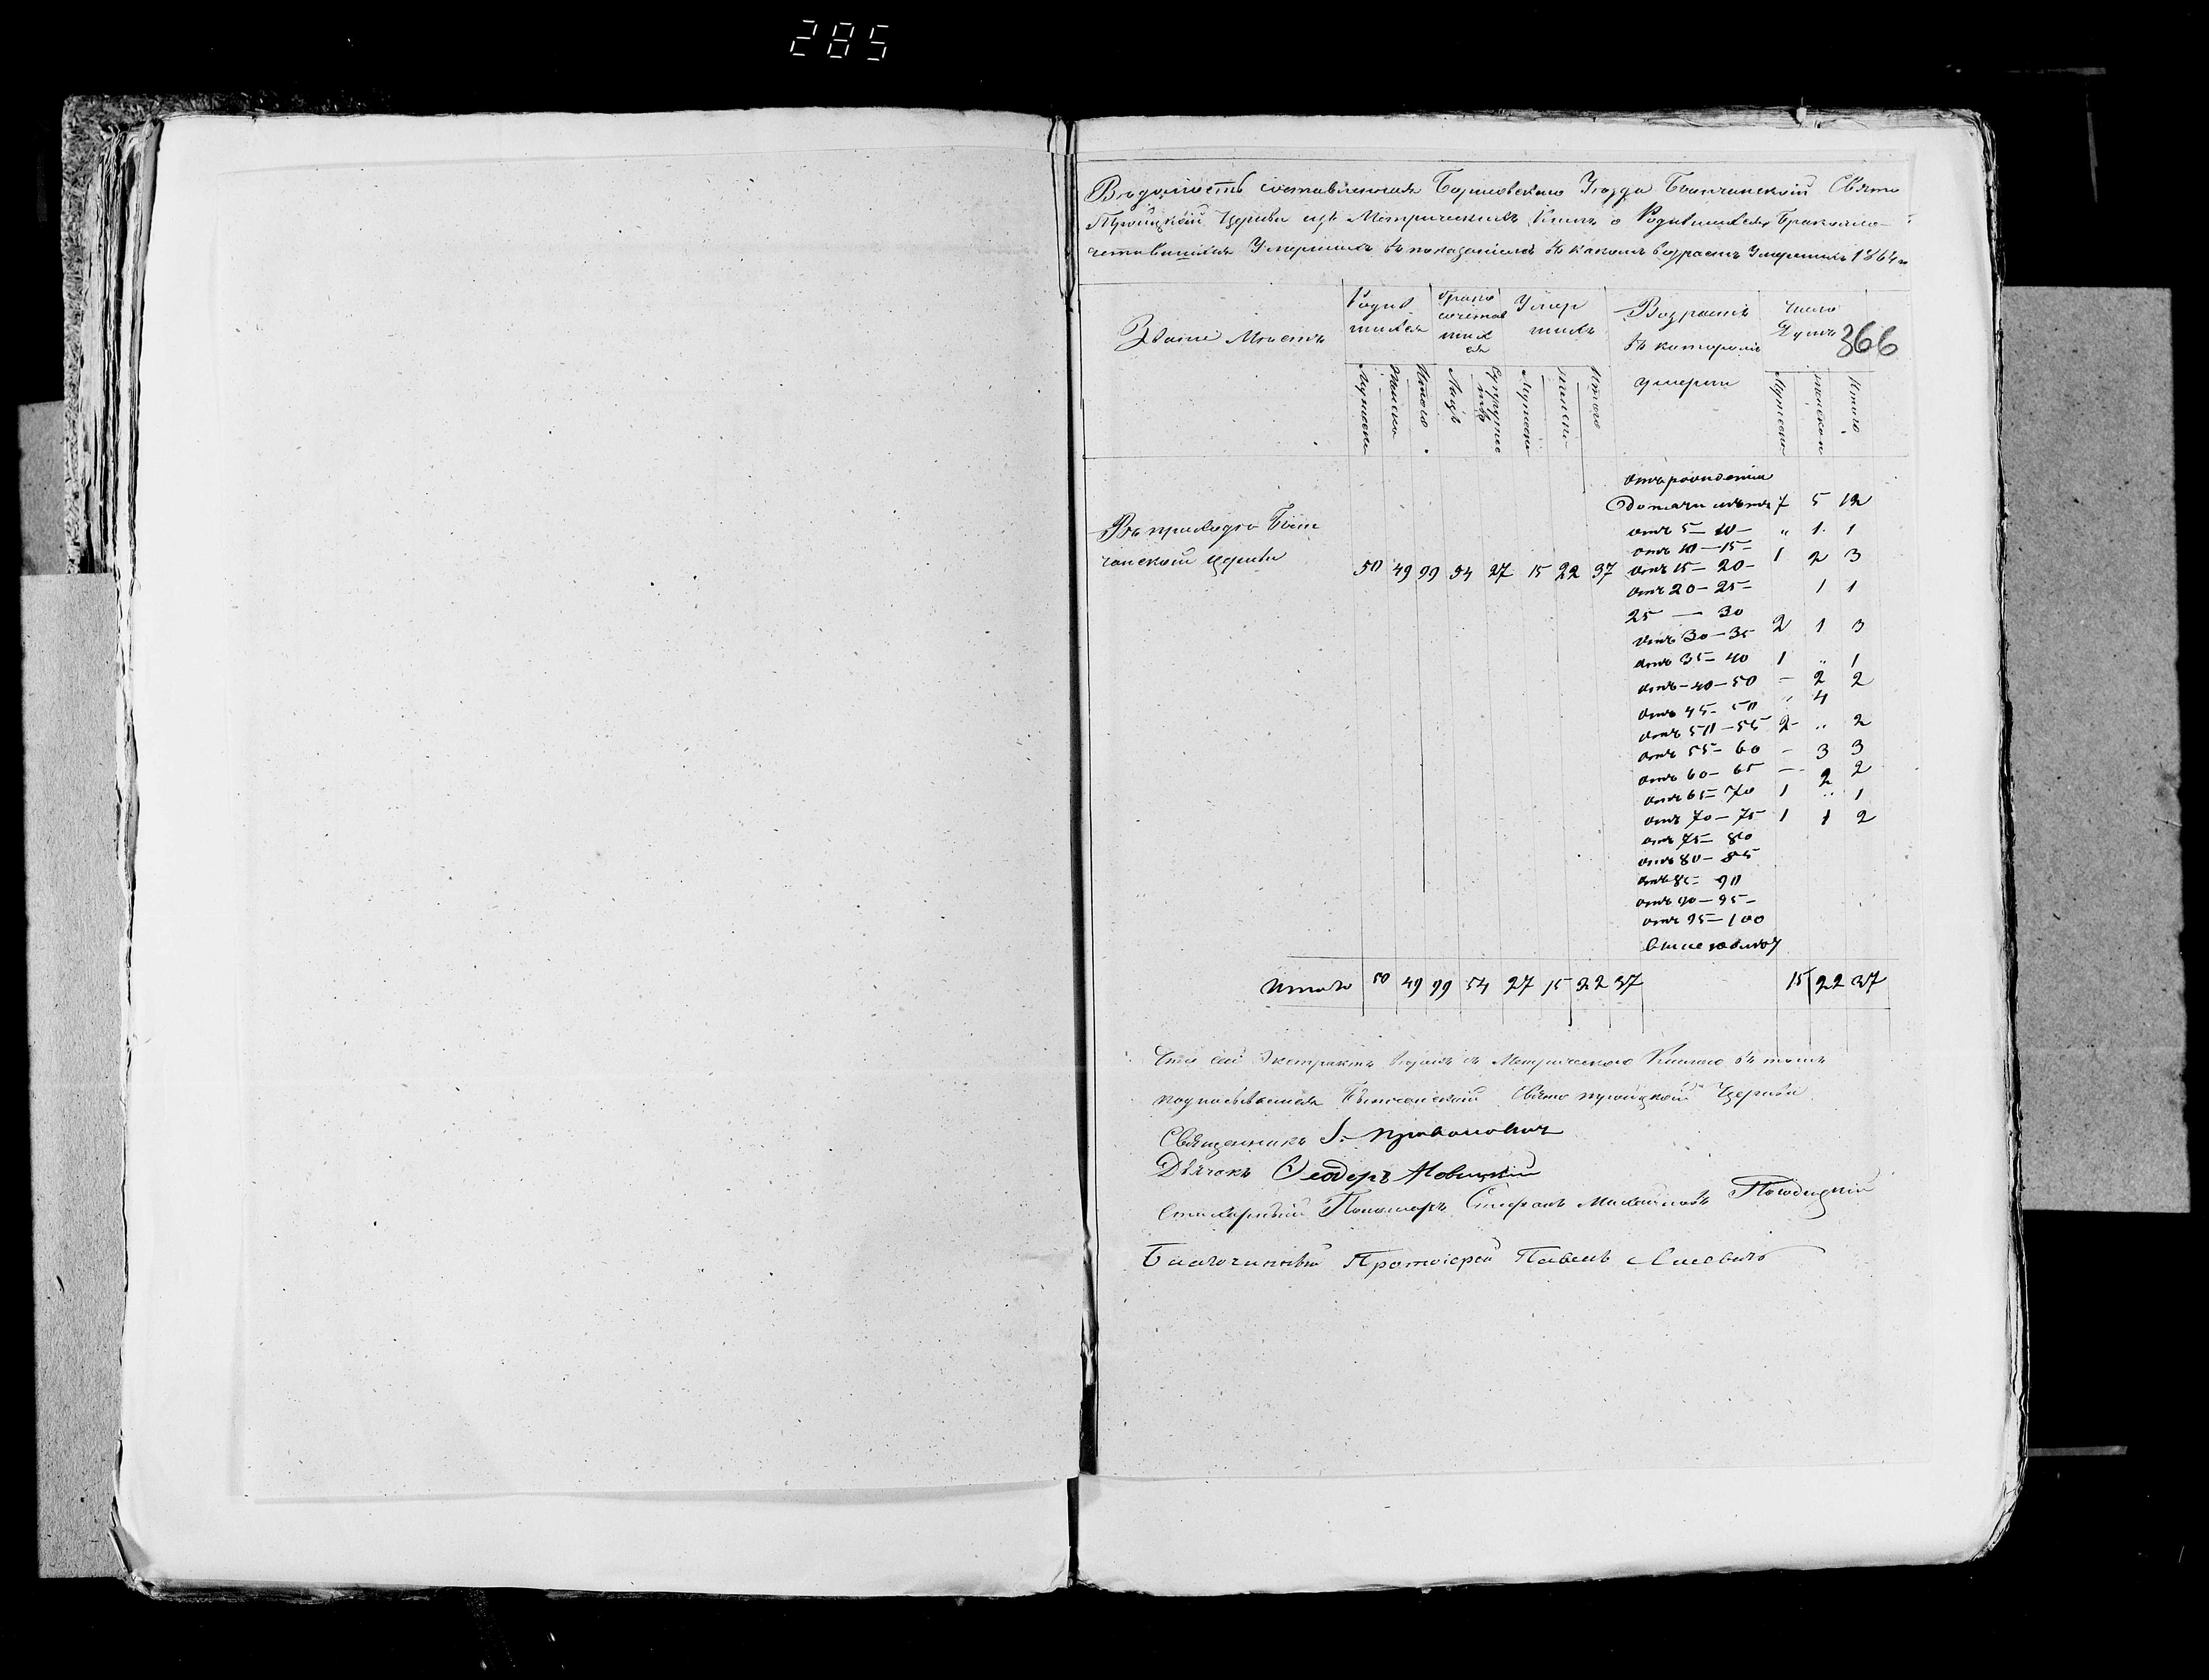 285
Вѣдомость составленная Борисовскаго Уѣзда Свято
Троицкой Церкви изъ Метрическихъ Книгъ о Родившихся Бракосо-
четавшихся Умершихъ съ показаніемъ въ какомъ возрастѣ Умершихъ 1864
366
Званіе Мѣстъ
Родив
шихся
Брако
сочетав
ших
ся
Умер
шихъ
Возрастъ
въ которомъ
умерли
Число
Душъ
Мужеска
Женска
Итого
Лицъ
Супруже
ствъ
Мужеска
Женска
Итого
Мужеска
Женска
Итого
отъ рожденія
До пяти лѣтъ 7 5 12
отъ 5 — 10 — " 1 1
отъ 10 — 15 —
Въ приходѣ
Церкви
50 49 99 54 27 15 22 37
отъ 15 — 20 — 1 2 3
отъ 20 — 25 — 1 1
25 — 30
отъ 30 — 35 2 1 3
отъ 35 — 40 1 " 1
отъ — 40 — 50 — 2 2
отъ 45 — 50 " 4
отъ 50 — 55 2 — " 2
отъ 55 — 60 — 3 3
отъ 60 — 65 — 2 2
отъ 65 — 70 1 " 1
отъ 70 — 75 1 1 2
отъ 75 — 80
отъ 80 — 85
отъ 85 — 90
отъ 90 — 95 —
отъ 95 — 100
выше
Итого 50 49 99 54 27 15 22 37 15 22 37
Что сей Экстрактъ съ Метрическою Книгою въ томъ
подписываемся Свято Троицкой Церкви
Священникъ І.
Дьячокъ Ѳеодоръ Новицкій
Стихарный Пономарь Стефанъ Михайловъ
Благочинный Протоіерей Павелъ